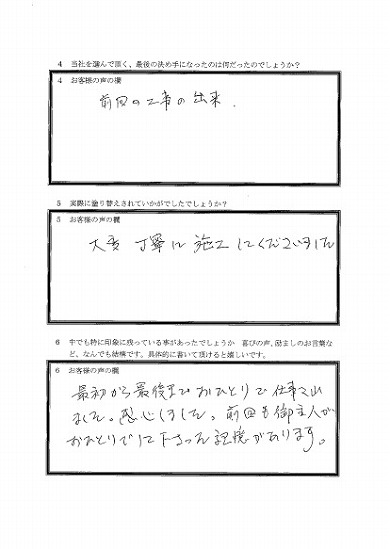 4 当社を選んで頂く、最後の決め手になったのは何だったのでしょうか？
4 お客様の声の欄
前回の工事の出来.
5 実際に塗り替えされていかがでしたでしょうか？
5 お客様の声の欄
大変 丁寧に 施工してくださいました
6 中でも特に印象に残っている事があったでしょうか 喜びの声、励ましのお言葉な
ど、なんでも結構です。具体的に書いて頂けると嬉しいです。
6 お客様の声の欄
最初から最後まで おひとりで 仕事
ました。感心しました。前回も御主人が
おひとりでして下さった記憶があります。